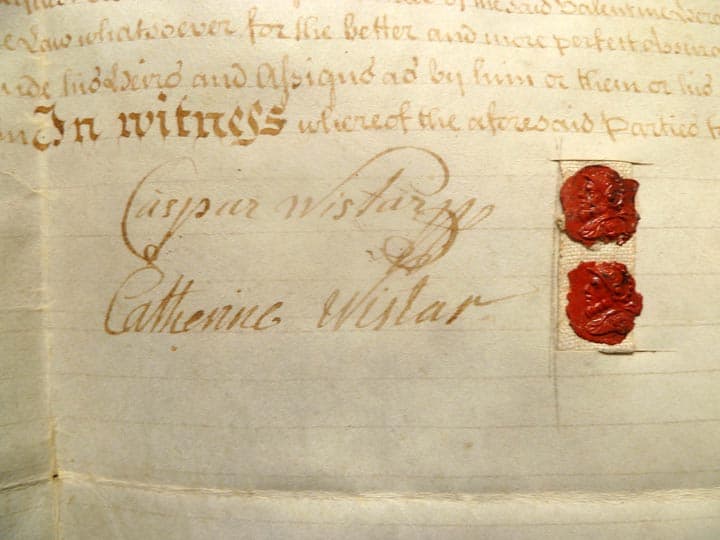 of the said Valentine
Law whatsoever for the better and more perfect
his Heirs and Assigns as by him or them or his
In witness whereof the aforesaid Parties
Caspar Wistar
Catherine Wistar